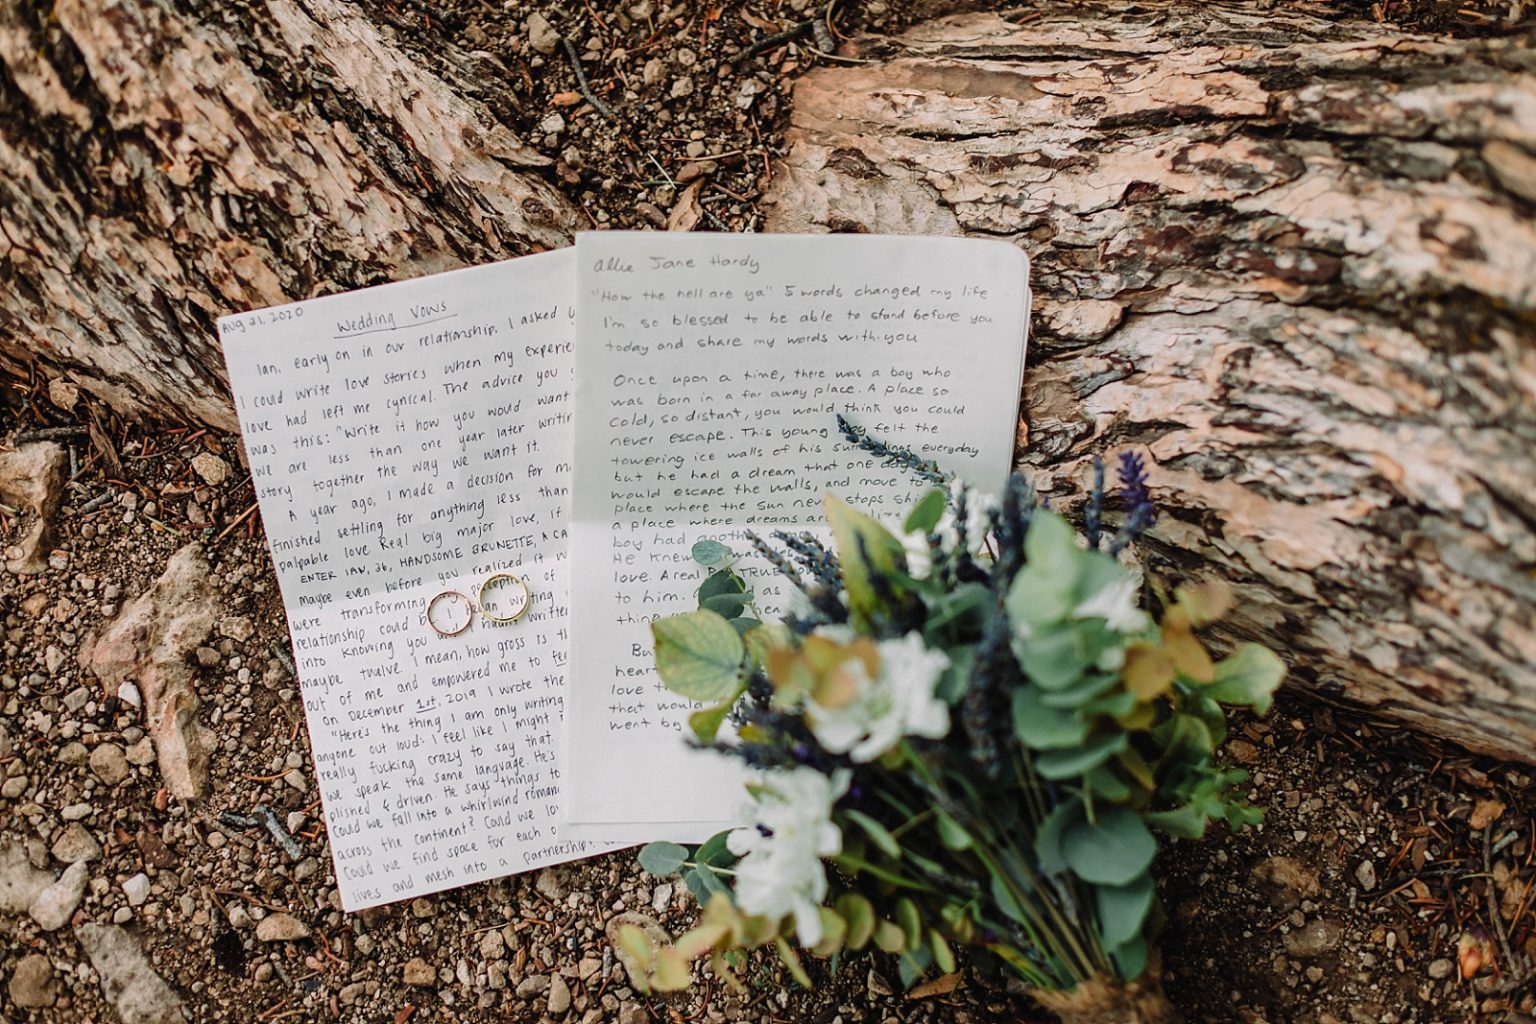 Aug 31, 2020
Wedding Vows
Ian, early on in our relationship, I asked
I could write love stories when my
love had left me cynical. The advice you
was this: "Write it how you would want
we are less than one year later
story together the way we want it.
A year ago, I made a decision for
finished settling for anything less than
palpable love. Real big major love,
ENTER IAN, 36, HANDSOME BRUNETTE, A
maybe even before you realized it
were transforming of
relationship could
into knowing you
maybe twelve. I mean, how gross is
out of me and empowered me to
on December 1st, 2019 I wrote the
"Here's the thing I am only writing
anyone out loud: I feel like I might
really fucking crazy to say that.
we speak the same language. He's
plished & driven. He says things to
Could we fall into a whirlwind
across the continent? Could we
Could we find space for each
lives and mesh into a partnership,
Allie Jane Hardy
"How the hell are ya" 5 words changed my life
I'm so blessed to be able to stand before you
today and share my words with you
Once upon a time, there was a boy who
was born in a far away place. A place so
cold, so distant, you would think you could
never escape. This young boy felt the
towering ice walls of his everyday
but he had a dream that one day
would escape the walls, and move to
place where the sun never stops
a place where dreams are
boy had another
He knew was
love. A real TRUE
to him. as
But
heart
love
that would
went by